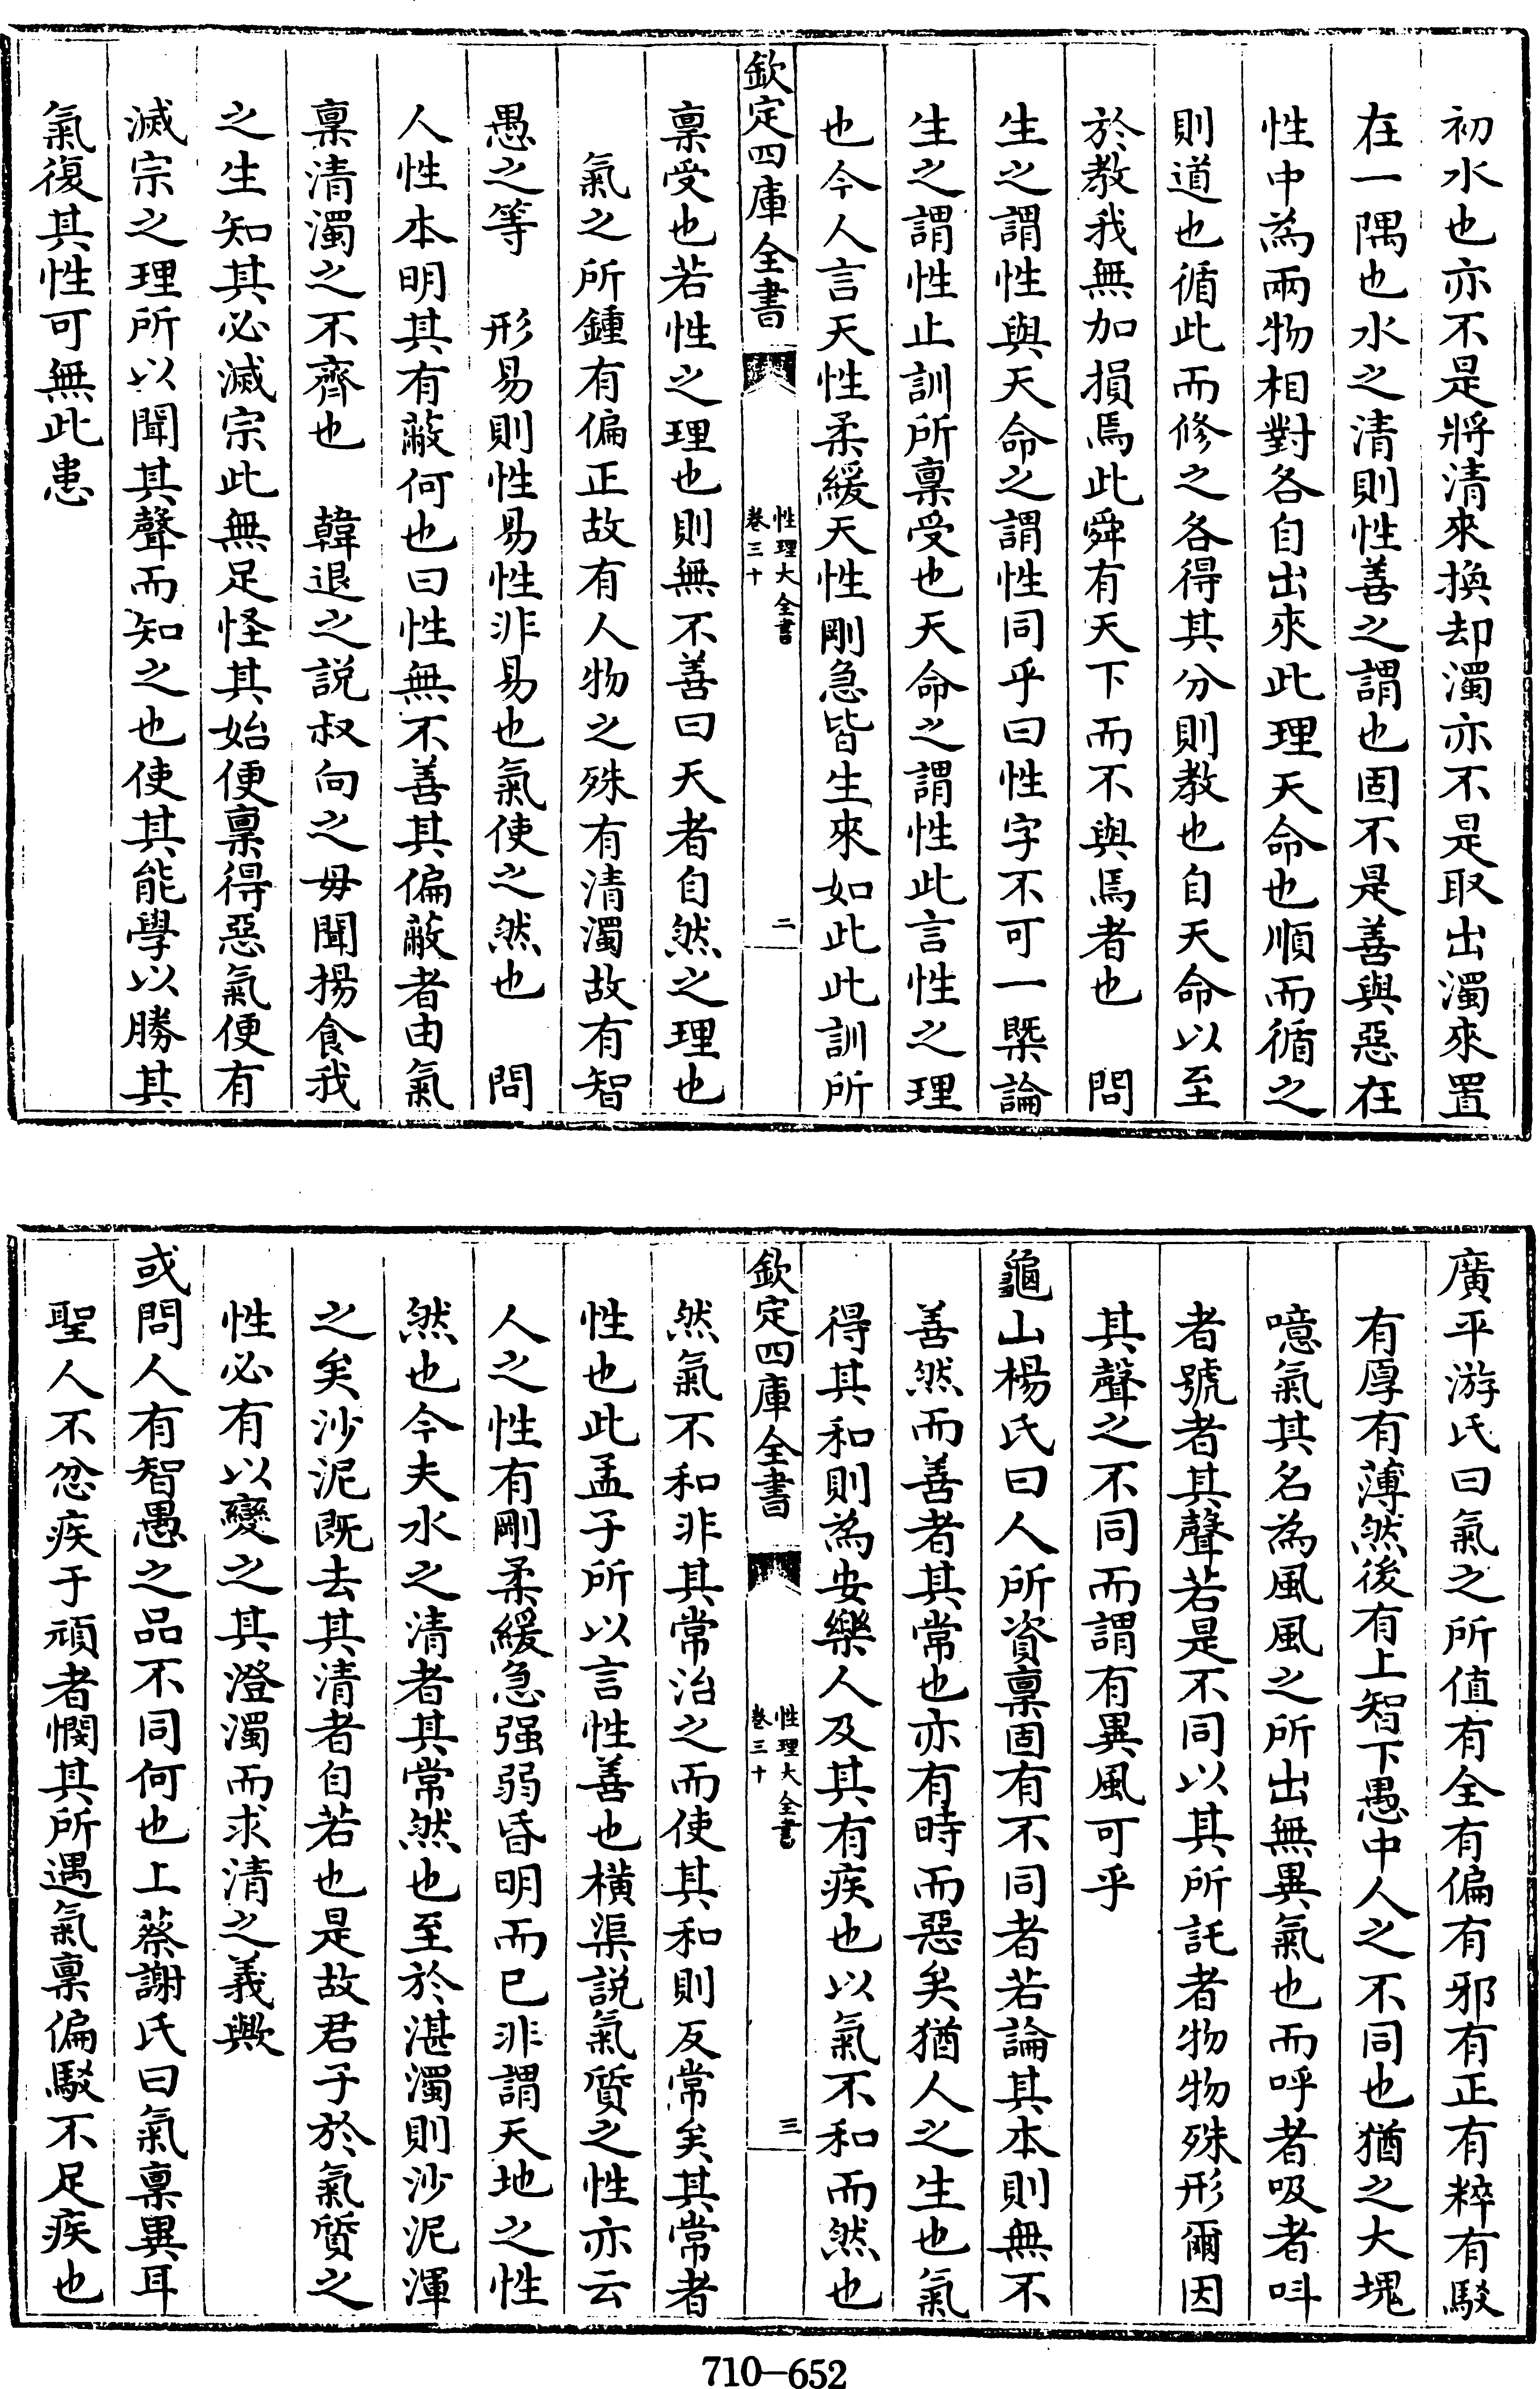 初水也亦不是將清來換却濁亦不是取出濁來置
在一隅也水之清則性善之謂也固不是善與惡在
性中為兩物相對各自出來此理天命也順而循之
則道也循此而修之各得其分則教也自天命以至
於教我無加損焉此舜有天下而不與焉者也　問
生之謂性與天命之謂性同乎曰性字不可一槩論
生之謂性止訓所稟受也天命之謂性此言性之理
也今人言天性柔緩天性剛急皆生來如此此訓所
欽定四庫全書　性理大全書　卷三十　二
稟受也若性之理也則無不善曰天者自然之理也
氣之所鍾有偏正故有人物之殊有清濁故有智
愚之等　形易則性易性非易也氣使之然也　問
人性本明其有蔽何也曰性無不善其偏蔽者由氣
稟清濁之不齊也　韓退之說叔向之母聞揚食我
之生知其必滅宗此無足怪其始便稟得惡氣便有
滅宗之理所以聞其聲而知之也使其能學以勝其
氣復其性可無此患
廣平游氏曰氣之所值有全有偏有邪有正有粹有駁
有厚有薄然後有上智下愚中人之不同也猶之大塊
噫氣其名為風風之所出無異氣也而呼者吸者叫
者號者其聲若是不同以其所託者物物殊形爾因
其聲之不同而謂有異風可乎
龜山楊氏曰人所資稟固有不同者若論其本則無不
善然而善者其常也亦有時而惡矣猶人之生也氣
得其和則為安樂人及其有疾也以氣不和而然也
欽定四庫全書　性理大全書　卷三十　三
然氣不和非其常治之而使其和則反常矣其常者
性也此孟子所以言性善也橫渠說氣質之性亦云
人之性有剛柔緩急强弱昏明而已非謂天地之性
然也今夫水之清者其常然也至於湛濁則沙泥渾
之矣沙泥既去其清者自若也是故君子於氣質之
性必有以變之其澄濁而求清之義歟
或問人有智愚之品不同何也上蔡謝氏曰氣稟異耳
聖人不忿疾于頑者憫其所遇氣稟偏駁不足疾也
710-652